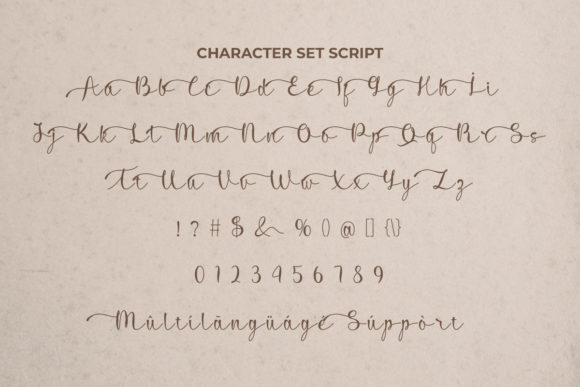 CHARACTER SET SCRIPT
Aa Bb Cc Dd Ee Ff Gg Hh İi
Jj Kk Ll Mm Nn Oo Pp Qq Rr Ss
Tt Uu Vv Ww Xx Yy Zz
! ? # $ & % () @ [] {\}
0 1 2 3 4 5 6 7 8 9
Mûltilãngüágé Súppòrt